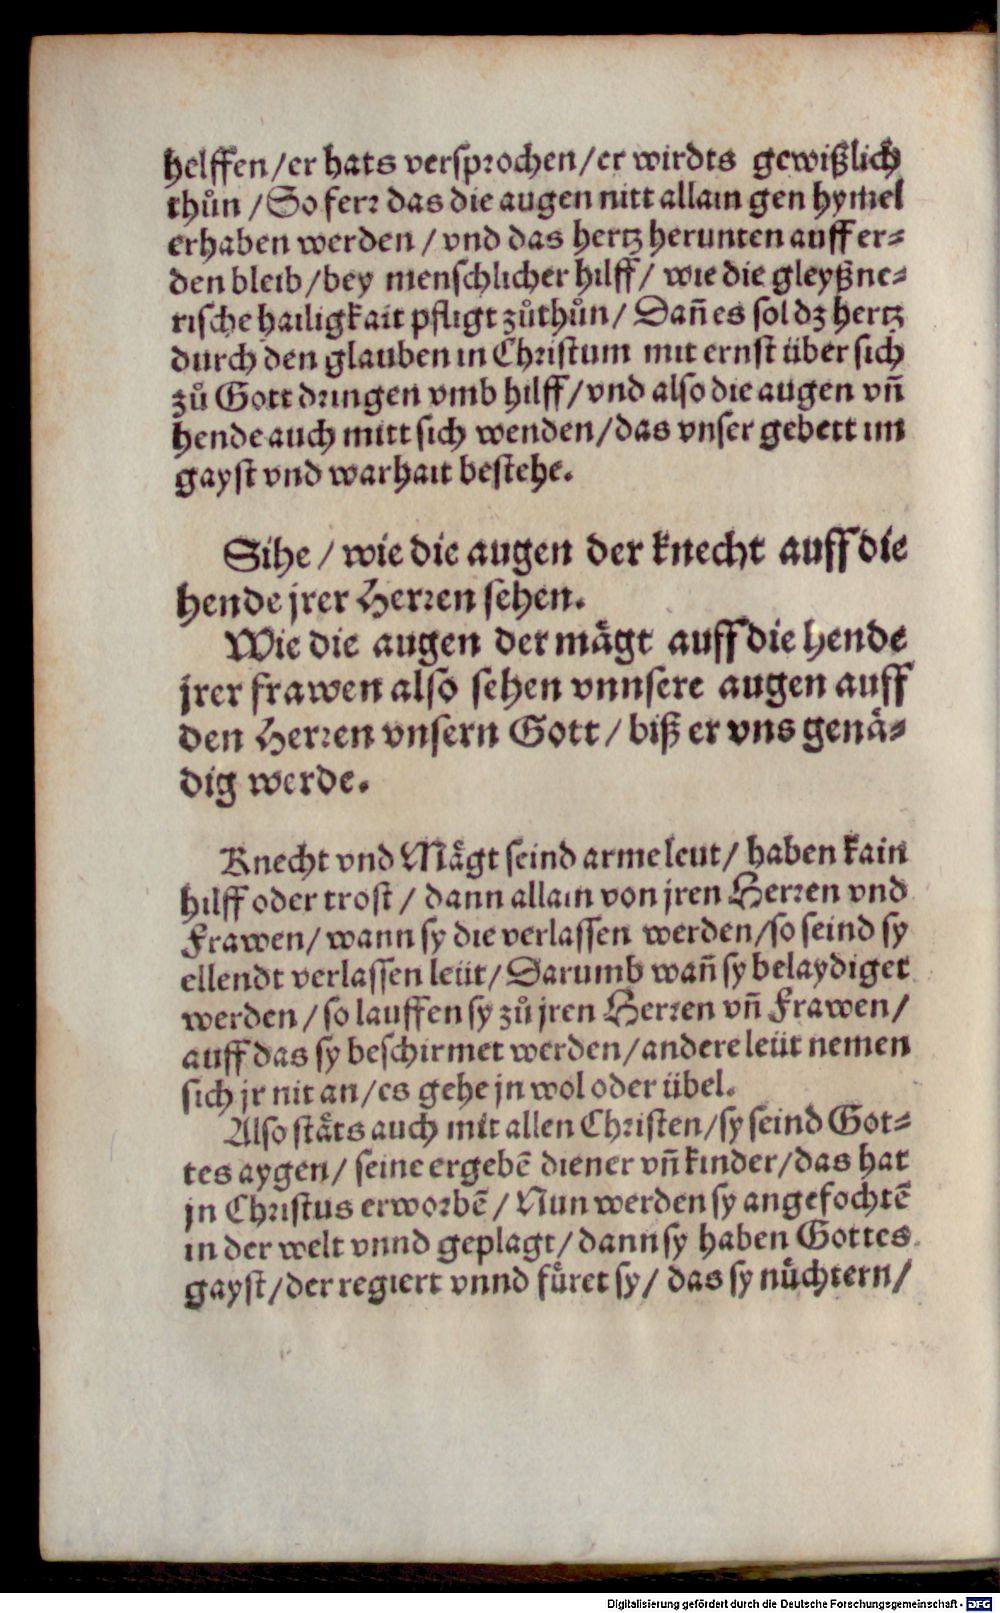 helffen / er hats versprochen / er wirdts gewißlich
thůn / So ferr das die augen nitt allain gen hymel
erhaben werden / vnd das hertz herunten auff er-
den bleib / bey menschlicher hilff / wie die gleyßne-
rische hailigkait pfligt zůthůn / Dañ es sol dz hertz
durch den glauben in Christum mit ernst über sich
zů Gott dringen vmb hilff / vnd also die augen vñ
hende auch mitt sich wenden / das vnser gebett im
gayst vnd warhait bestehe.
Sihe / wie die augen der knecht auff die
hende jrer Herren sehen.
Wie die augen der mägt auff die hende
jrer frawen also sehen vnnsere augen auff
den Herren vnsern Gott / biß er vns genä-
dig werde.
Knecht vnd Mägt seind arme leut / haben kain
hilff oder trost / dann allain von jren Herren vnd
Frawen / wann sy die verlassen werden / so seind sy
ellendt verlassen leüt / Darumb wañ sy belaydiget
werden / so lauffen sy zů jren Herren vñ Frawen /
auff das sy beschirmet werden / andere leüt nemen
sich jr nit an / es gehe jn wol oder übel.
Also stäts auch mit allen Christen / sy seind Got-
tes aygen / seine ergebē diener vñ kinder / das hat
jn Christus erworbē / Nun werden sy angefochtē
in der welt vnnd geplagt / dann sy haben Gottes
gayst / der regiert vnnd fůret sy / das sy nůchtern /
Digitalisierung gefördert durch die Deutsche Forschungsgemeinschaft - DFG